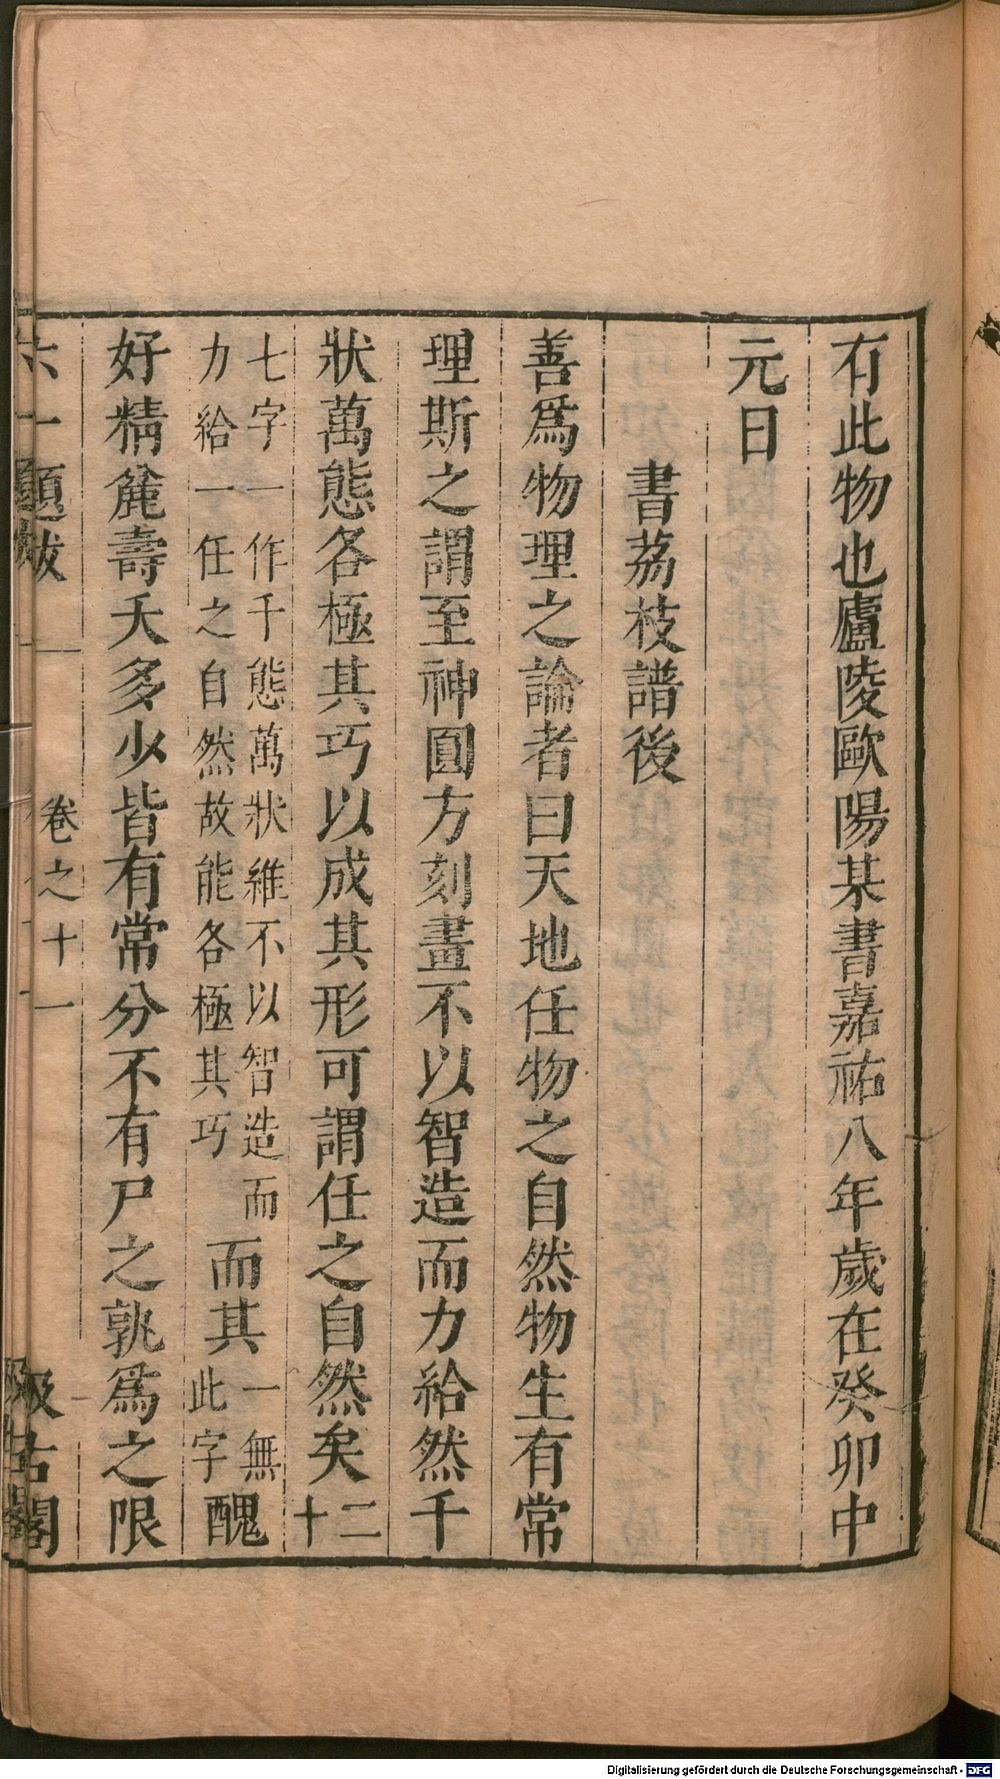 有此物也廬陵歐陽某書嘉祐八年歲在癸卯中
元日
書荔枝譜後
善爲物理之論者曰天地任物之自然物生有常
理斯之謂至神圓方刻畫不以智造而力給然千
狀萬態各極其巧以成其形可謂任之自然矣二十
七字一作千態萬狀維不以智造而
力給一任之自然故能各極其巧
而其一無此字醜
好精麄壽夭多少皆有常分不有尸之孰爲之限
六一題跋 卷之十一 汲古閣
Digitalisierung gefördert durch die Deutsche Forschungsgemeinschaft - DFG